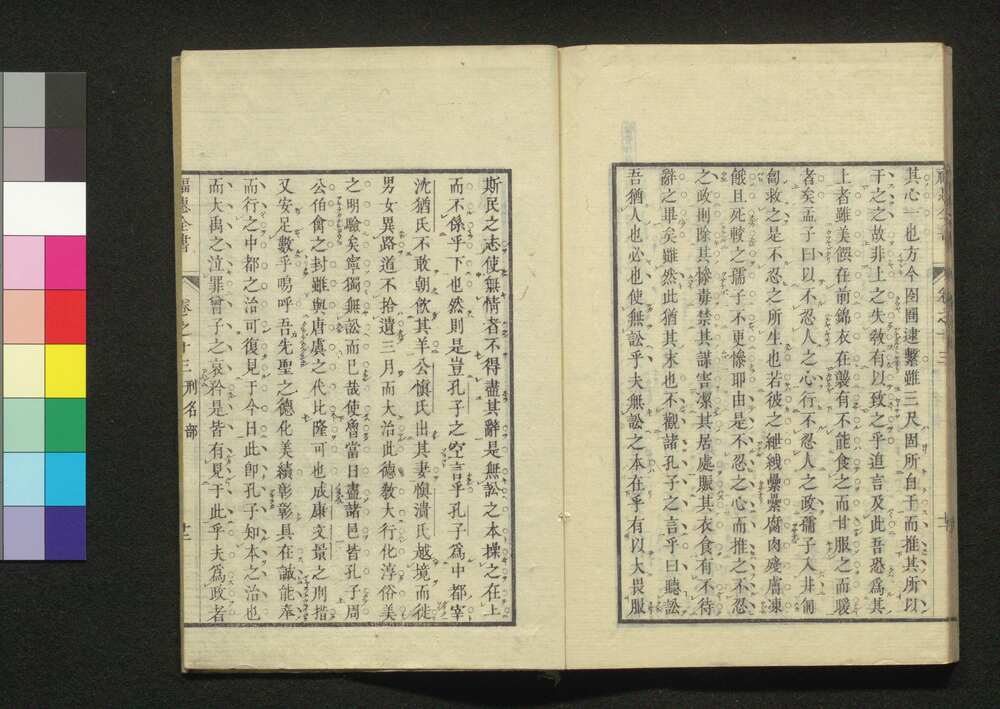 其心一也方今囹圄逮繫雖三尺固所自干而推其所以
干之之故非上之失敎有以致之乎追言及此吾恐爲其
上者雖美饌在前錦衣在襲有不能食之而甘服之而暖
者矣孟子曰以不忍人之心行不忍人之政孺子入井匍
匐救之是不忍之所生也若彼之紲絏纍纍腐肉殘膚凍
餓且死較之孺子不更慘耶由是不忍之心而推之不忍
之政則除其慘毒禁其謀害潔其居處賑其衣食有不待
辭之畢矣雖然此猶其末也不觀諸孔子之言乎曰聽訟
吾猶人也必也使無訟乎夫無訟之本在乎有以大畏服
斯民之志使無情者不得盡其辭是無訟之本操之在上
而不係乎下也然則是豈孔子之空言乎孔子爲中都宰
沈猶氏不敢朝飮其羊公愼氏出其妻愼潰氏越境而徙
男女異路道不拾遺三月而大治此德敎大行化淳俗美
之明驗矣寧獨無訟而已哉使魯當日盡諸邑皆孔子周
公伯禽之封雖與唐虞之代比隆可也成康文景之刑措
又安足數乎嗚呼吾先聖之德化美績彰彰具在誠能奉
而行之中都之治可復見于今日此卽孔子知本之治也
而大禹之泣罪曾子之哀矜是皆有見于此乎夫爲政者
福惠全書 卷之十三 刑名部